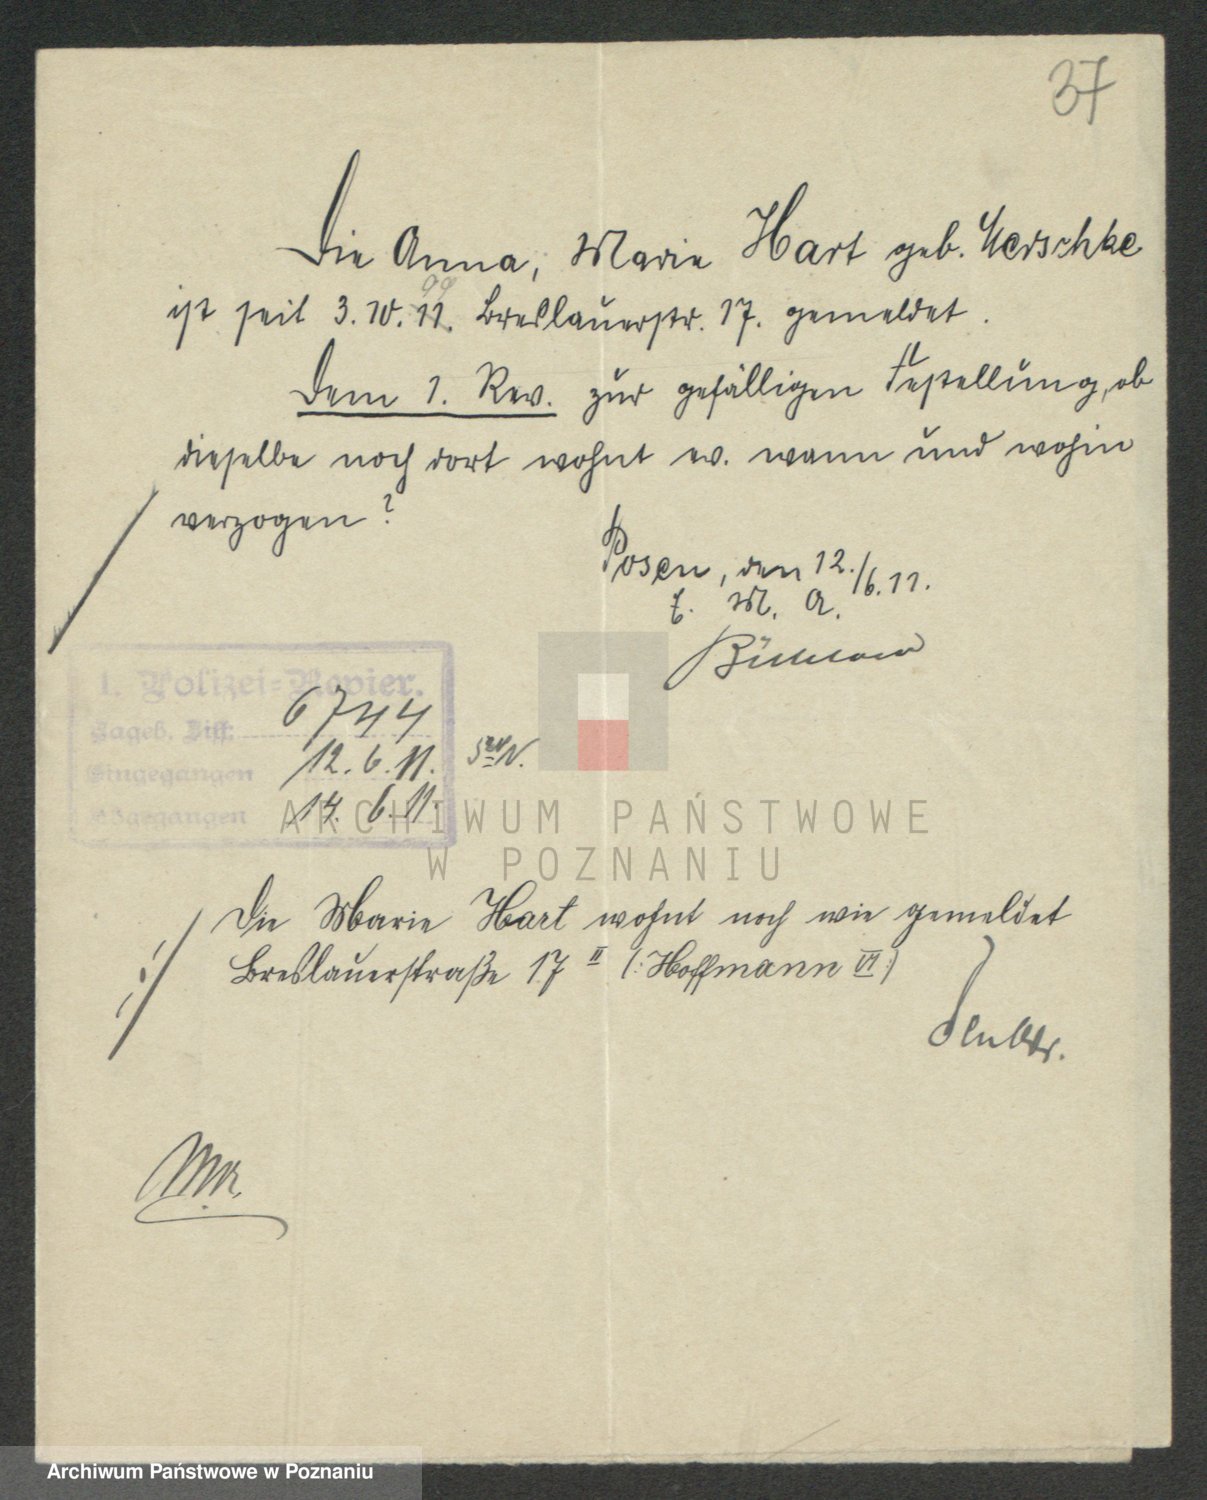 37
Die Anna, Marie Hart geb. Yerschke
99
ist seit 3. 10. 11. Breslauerstr. 17. gemeldet.
Dem 1. Rev. zur gefälligen Festellung, ob
dieselbe noch dort wohnt ev. wann und wohin
verzogen?
Posen, den 12./6. 11.
E. M. A.
1. Polizei-Revier.
Tageb. Diff: 6744
Eingegangen 12. 6. 11.
Abgegangen 14. 6. 11.
ARCHIWUM PAŃSTWOWE
W POZNANIU
Die Marie Hart wohnt noch wie gemeldet
Breslauerstraße 17 II (: Hoffmann VI :)
Archiwum Państwowe w Poznaniu